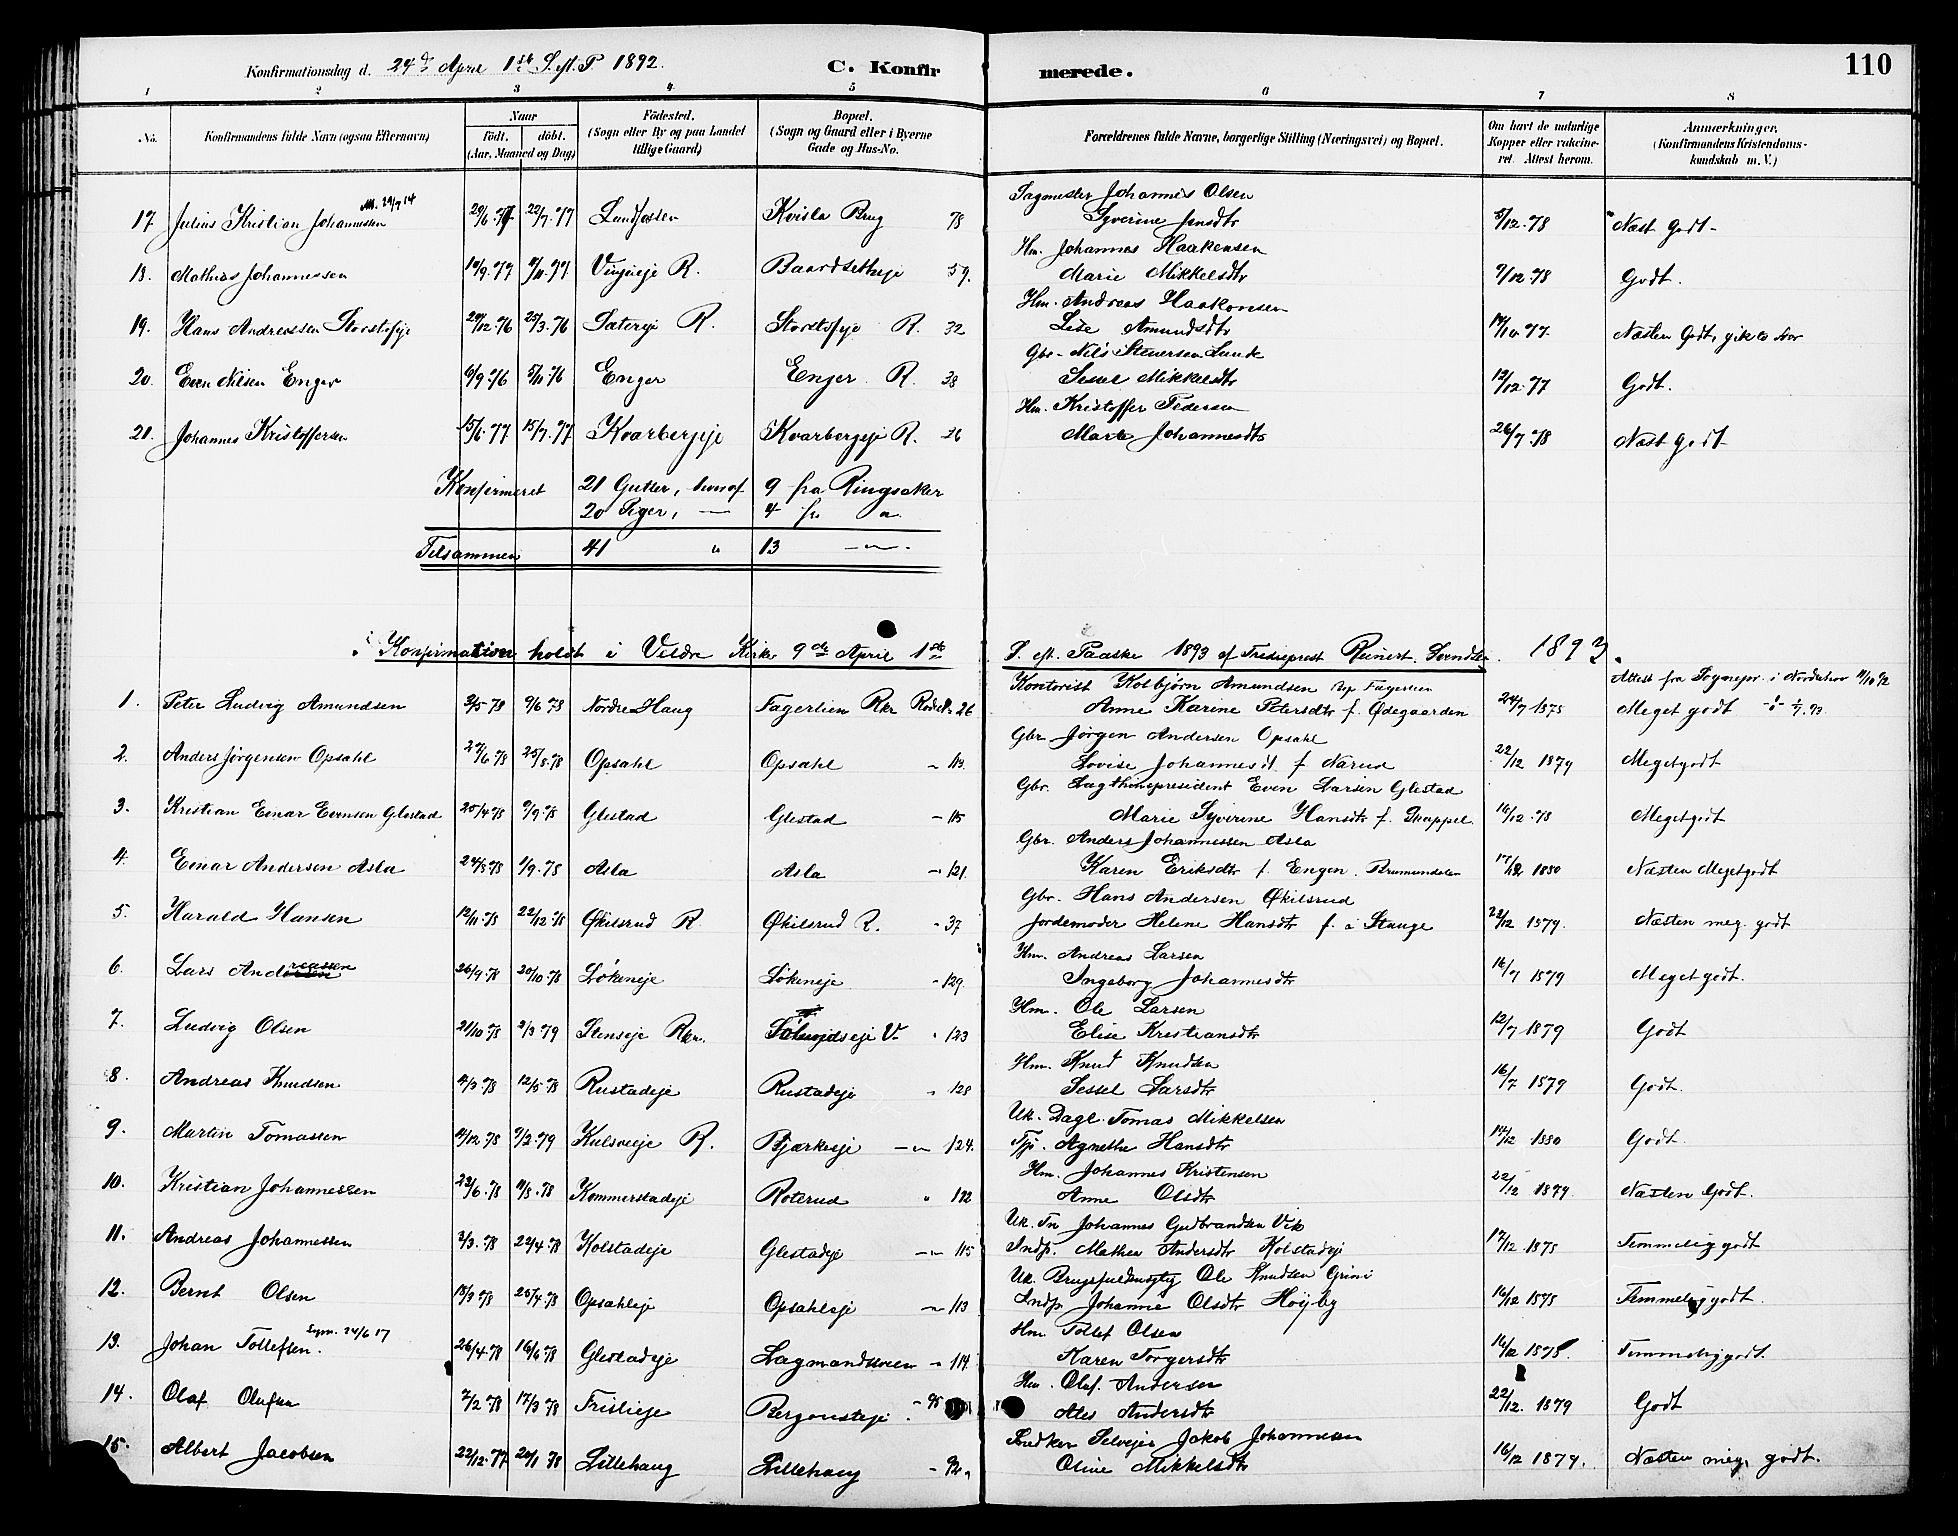 Konfirmationsdag d. 24de April 1ste S. eft. P 1892.
C. Konfirmerede.
110
1 2 3 4 5 6 7 8
No.
Konfirmandens fulde Navn (ogsaa Efternavn)
Naar
födt. döbt.
(Aar, Maaned og Dag)
Födested.
(Sogn eller By og paa Landet
tillige Gaard)
Bopæl.
(Sogn og Gaard eller i Byerne
Gade og Hus-No.
Forældrenes fulde Navne, borgerlige Stilling (Næringsvei) og Bopæl.
Om havt de naturlige
Kopper eller vakcine-
ret. Attest herom.
Anmærkninger,
(Konfirmandens Kristendoms-
kundskab m. V.)
17 Julius Kristian Johannessen 29/6 77 22/7 77 Lundfossen Kvisla Brug 78 Sagmester Johannes Olsen
Syverine Jensdtr 5/12 78 Næst Godt
18. Mathias Johannessen Baardsetheje 59. Hm. Johannes Haakensen
Marie Mikkelsdtr 9/12 78 Godt.
19. Hans Andreassen Storstofeje Storstofeje R. 32 Hm. Andreas Haakonsen
Lise Amundsdtr Næsten Godt, gik o for
20. Even Nilsen Enger 6/9 76 5/11 76 Enger Enger R. 38 Gbr. Nils Stenersen Lunde
Sessel Mikkelsdtr 12/12 77 Godt.
21. Johannes Kristoffersen 15/6 77 15/7 77 Kvarbergeje Kvarbergeje R. 36 Hm. Kristoffer Pedersen
Marte Johannesdtr 26/7 78 Næst godt
Konfirmeret 21 Gutter, hvoraf 9 fra Ringsaker
20 Piger, — 4 fra
Tilsammen 41 " 13 —"—
Konfirmation holdt i Veldre Kirke 9de April 1ste S. eft. Paaske 1893 af Fredriprest Reinert Svendsen. 1893.
1. Peter Ludvig Amundsen 3/5 78 9/6 78 Nordre Haug Fagerlien Rkr 26 Kontorist Kolbjørn Amundsen Fagerlien
Anne Karine Petersdtr f. Ødegaarden 24/7 1878 Attest fra Sognepr. i Nordrehov
Meget godt
2. Anders Jørgensen Opsahl 25/8 78 Opsahl Opsahl 113 Gbr Jørgen Andersen Opsahl
Lovise Johannesd f. Nærud 22/12 1879 Megetgodt
3. Kristian Einar Evensen Glestad 20/4 78 9/9 78 Glestad Glestad 115 Gbr. Lagthingspresident Even Larsen Glestad
Marie Syverine Hansdtr f. Skappel 16/12 78 Megetgodt
4. Einar Andersen Asla 1/9 78 Asla Asla 121 Gbr. Anders Johannessen Asla
Karen Eriksdtr f. Engen. Brumundalen 1880 Næsten Megetgodt
5. Harald Hansen 12/11 78 22/12 78 Økilsrud R. Økilsrud R. 37 Gbr. Hans Andersen Økilsrud
Jordemoder Helene Hansdtr f. i Stange 22/12 1879. Næsten meg. godt
6. Lars Andreassen 26/9 78 20/10 78 Løkeneje Løkeneje 129. Hm. Andreas Larsen
Ingeborg Johannesdtr 16/7 1879 Meget godt.
7. Ludvig Olsen 21/10 78 2/3 79 Stenseje Rkr. V. 123 Hm. Ole Larsen
Elise Kristiansdtr 12/7 1879 Godt
8. Andreas Knudsen 12/5 78 Rustadeje Rustadeje 128 Hm. Knud Knudsen
Sessel Larsdtr 16/7 1879 Godt.
9. Martin Tomassen 9/2 79 Kulsveje R. Bjærkeeje —"— 124. Uk. Dagl. Tomas Mikkelsen
Tpi. Agnethe Hansdtr 1880 Godt.
10. Kristian Johannessen 23/6 78 Kommerstadeje Roterud " 122 Hm. Johannes Kristensen
Anne Olsdtr 22/12 1879. Næsten Godt.
11. Andreas Johannessen 3/3 78 Kolstadeje Glestadeje —"— 115 Uk. Tn Johannes Gudbrandsen Vik
Indp. Mathea Andersdtr Kolstadeje 17/12 1878 Temmelig godt
12. Bernt Olsen Opsahleje Opsahleje —"— 113 Uk. Brugsfuldmægtig Ole Knudsen Grini
Indp. Johanne Olsdtr Høyby 16/12 1878 Temmelig godt.
13. Johan Tollefsen. 24/6 17 26/4 78 16/6 78 Glestadeje Lagmandsveen 114 Hm Tollef Olsen
Karen Torgersdtr 16/12 1878 Temmelig godt.
14. Olaf Olufsen 7/2 78 17/3 78 Fristieje Hm. Olaf Andersen
Ales Andersdtr 22/12. 1879 Godt
15. Albert Jacobsen 22/12 77 20/1 78 Lillehaug Lillehaug Snedker Selvejer Jakob Johannessen
Oline Mikkelsdtr 16/12 1879. Næsten meg. godt.